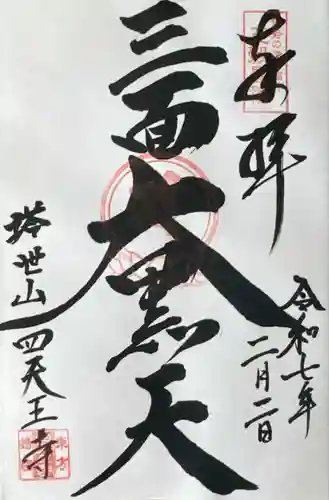 奉拝
令和七年
二月二日
三面大黒天
塔世山
四天王寺